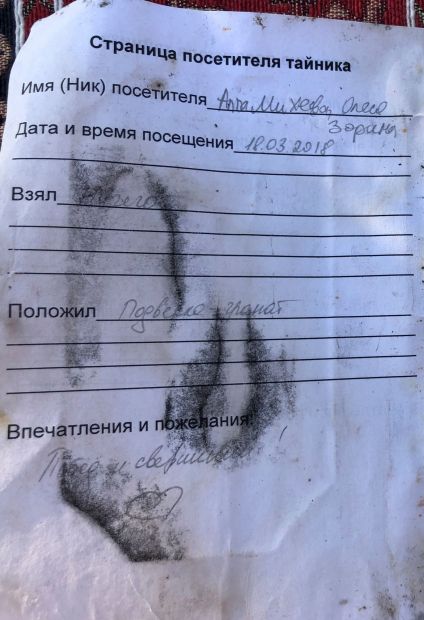 Страница посетителя тайника
Имя (Ник) посетителя Алла Михеева Олеся
Зорина
Дата и время посещения 18.03.2018
Взял
Положил Подвеска гранат
Впечатления и пожелания:
и !